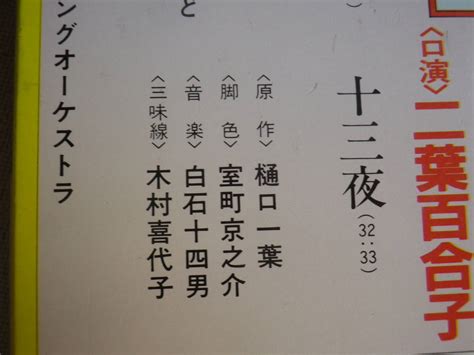 〈口演〉二葉百合子
）
十三夜(32:33)
〈原作〉樋口一葉
〈脚色〉室町京之介
〈音楽〉白石十四男
〈三味線〉木村喜代子
と
ングオーケストラ